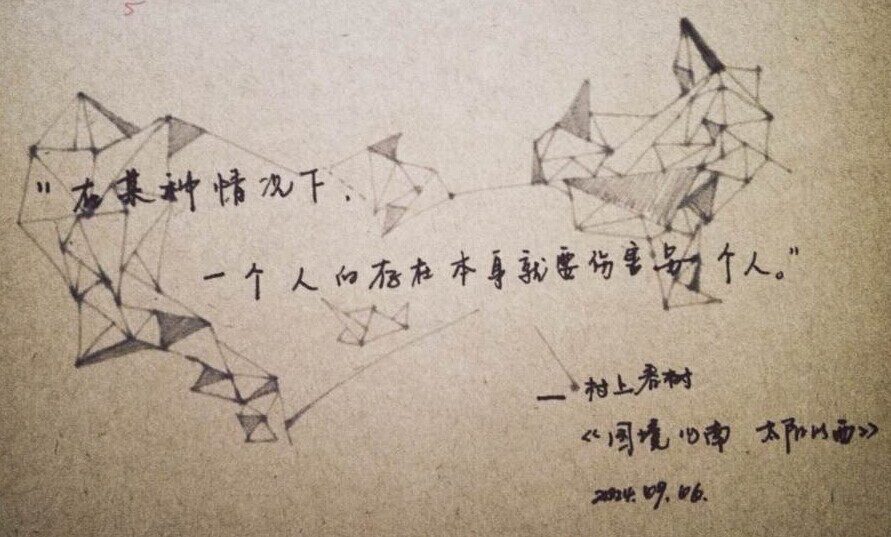 5
"在某种情况下,
一个人的存在本身就要伤害另一个人。"
— 村上春树
《国境以南 太阳以西》
2024.09.06.